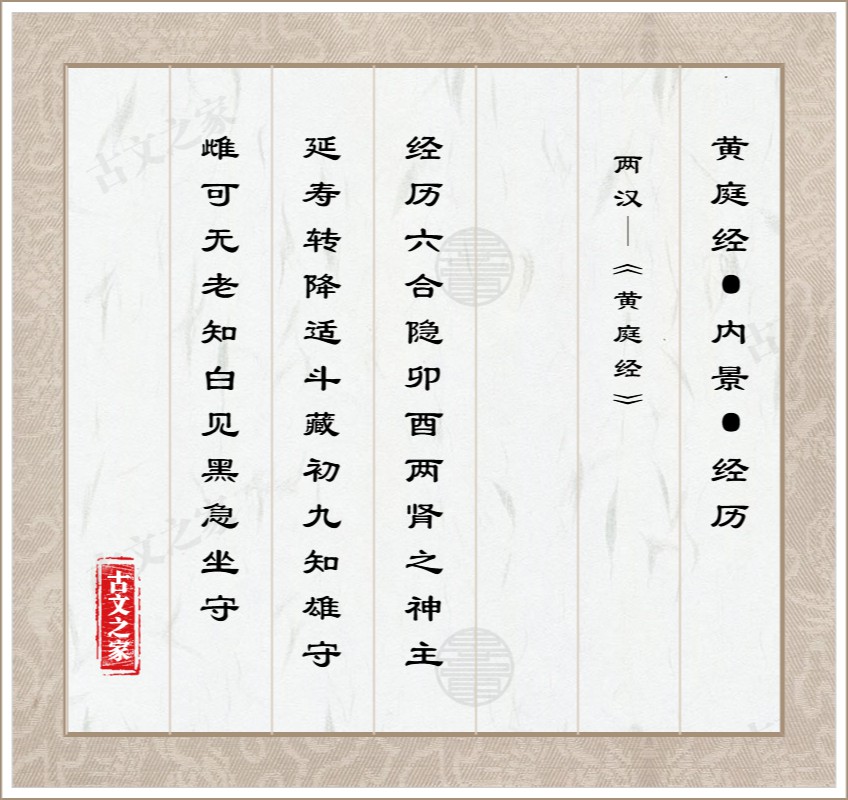 黄庭经●内景●经历
两汉—《黄庭经》
经历六合隐卯酉两肾之神主
延寿转降适斗藏初九知雄守
雌可无老知白见黑急坐守
古文之家
古文之家
古文之家